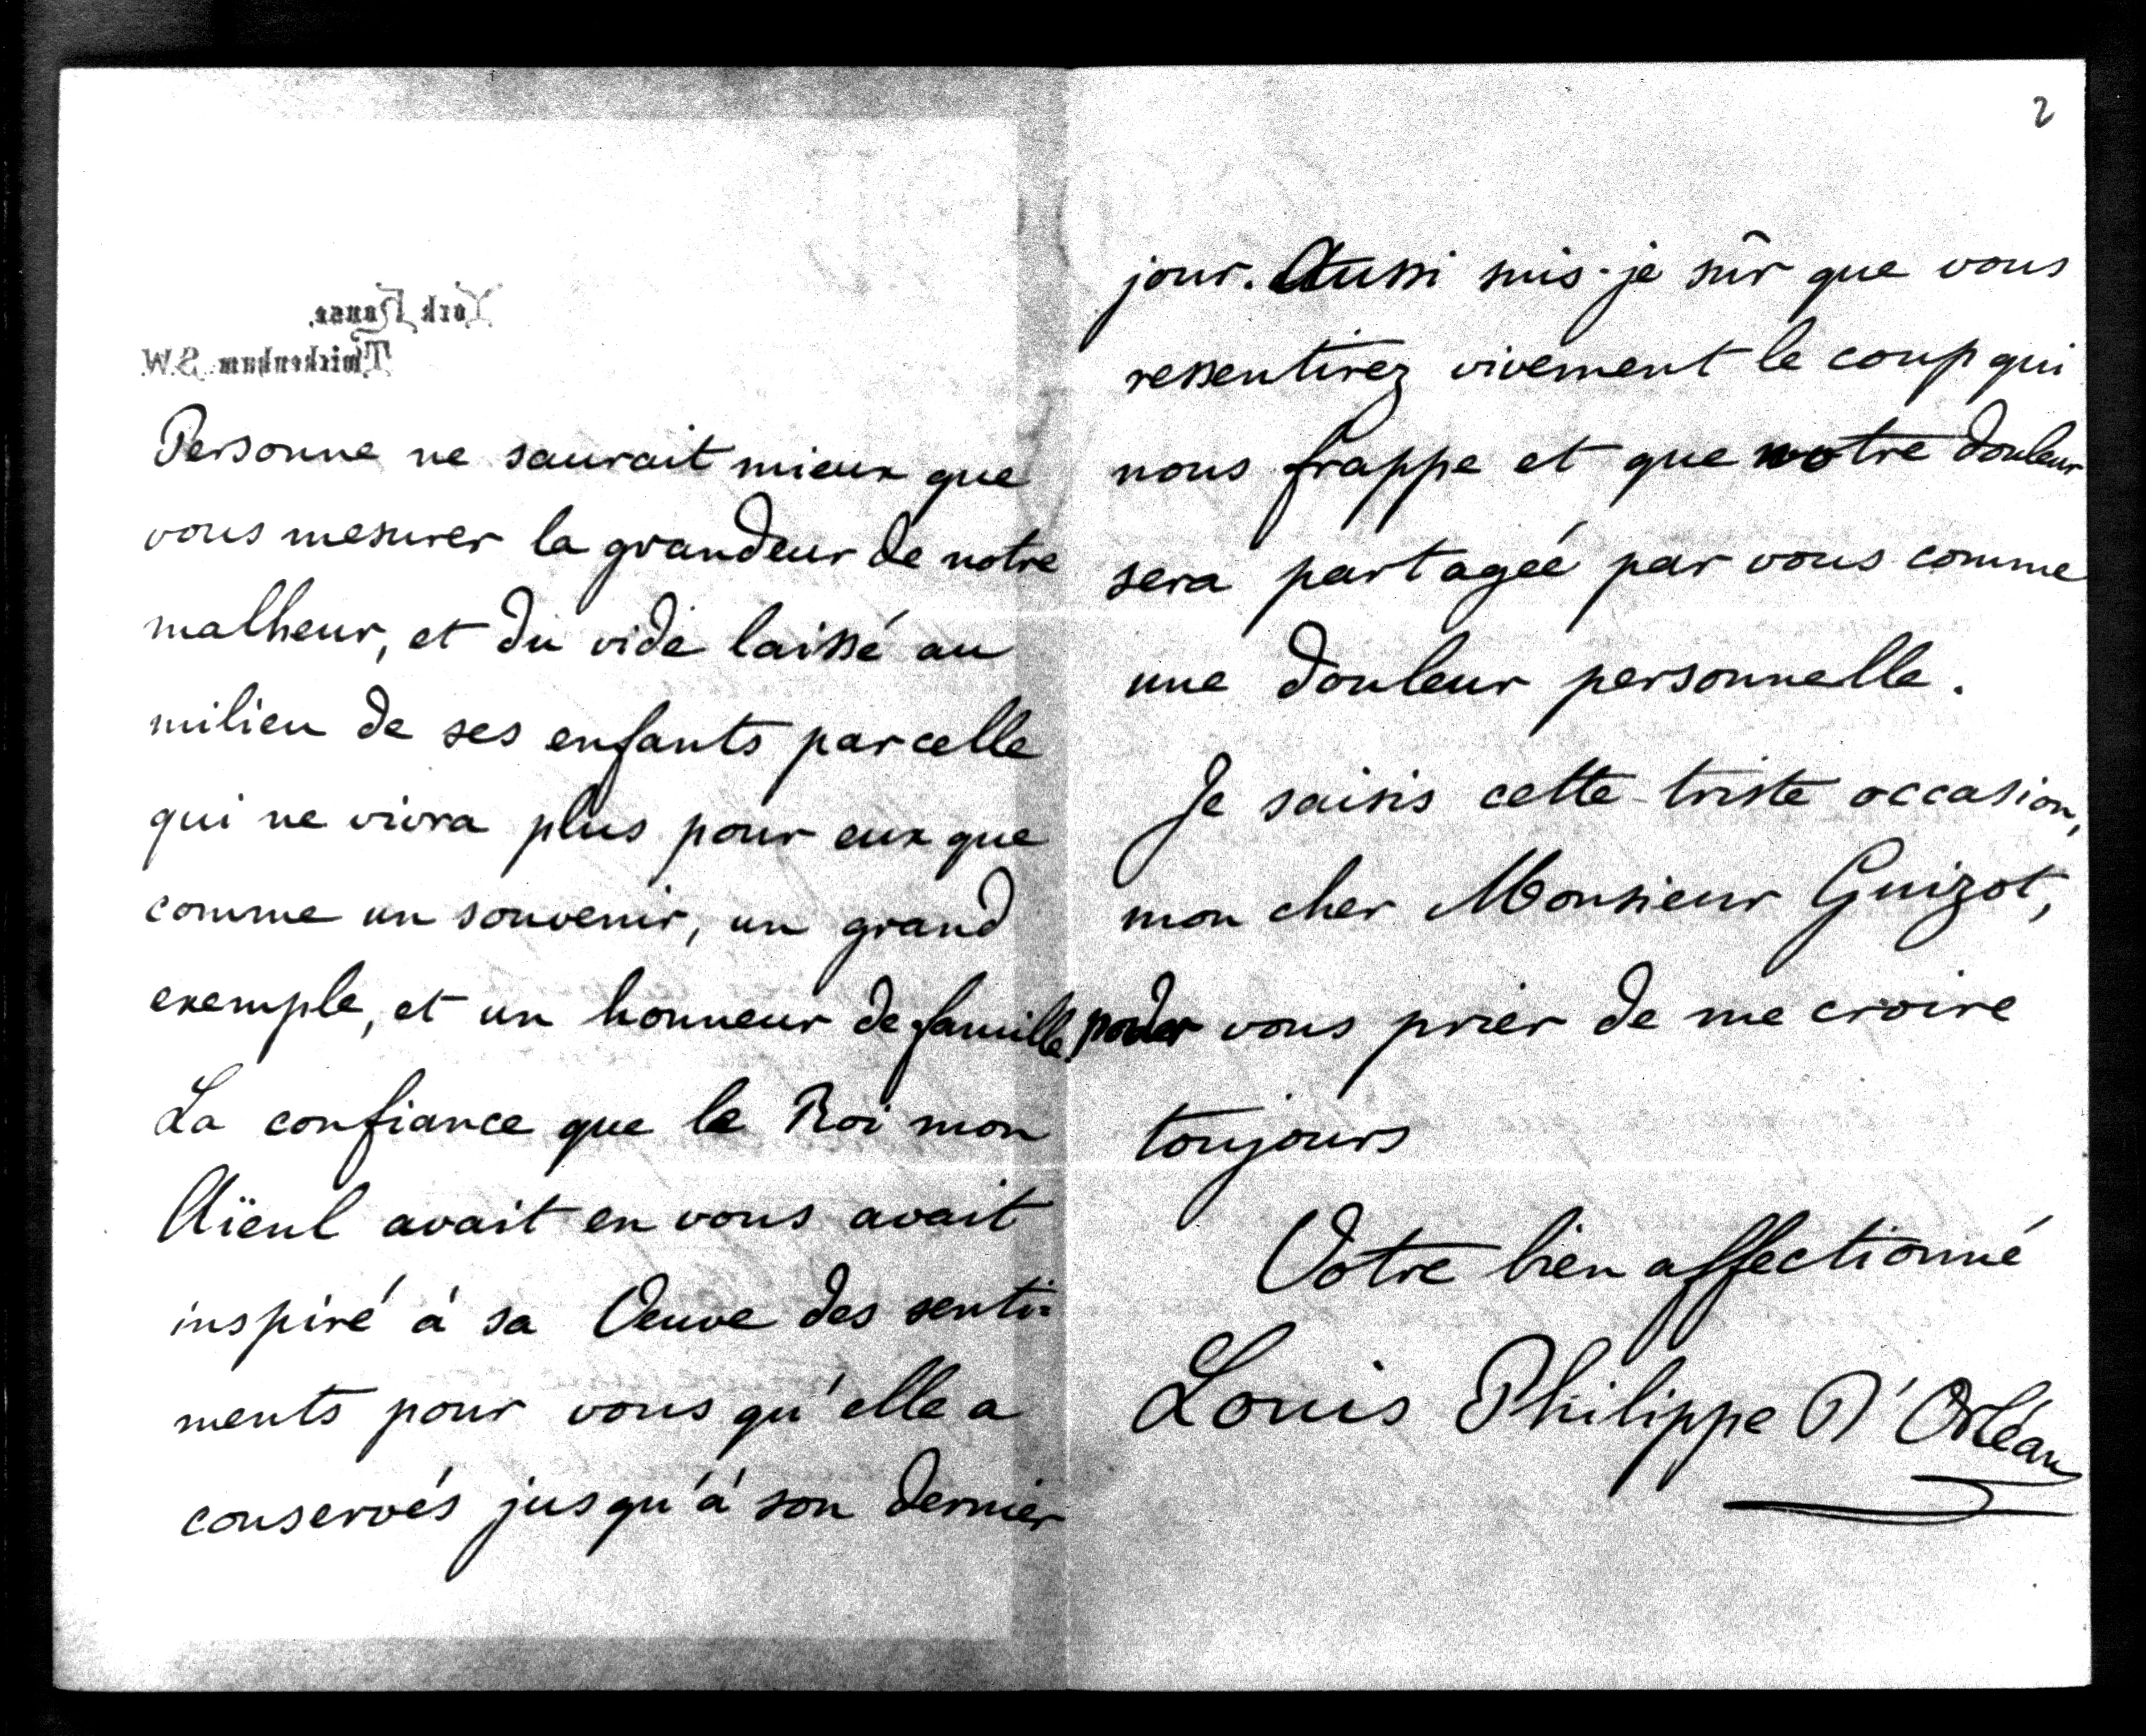 York House.
Twickenham. S.W.
Personne ne saurait mieux que
vous mesurer la grandeur de notre
malheur, et du vide laissé au
milieu de ses enfants par celle
qui ne vivra plus pour eux que
comme un souvenir, un grand
exemple, et un honneur de famille.
La confiance que le Roi mon
Aïeul avait en vous avait
inspiré à sa Veuve des senti=
ments pour vous qu'elle a
conservés jusqu'à son dernier
2
jour. Aussi suis-je sûr que vous
ressentirez vivement le coup qui
nous frappe et que notre douleur
sera partagée par vous comme
une douleur personnelle.
Je saisis cette triste occasion,
mon cher Monsieur Guizot,
vous prier de me croire
toujours
Votre bien affectionné
Louis Philippe D'Orléans